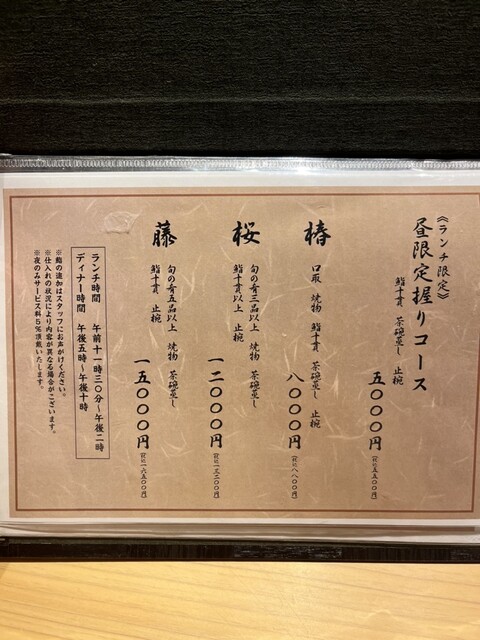 《ランチ限定》
昼限定握りコース
鮨十貫 茶碗蒸し 止椀
五〇〇〇円
(税込五五〇〇円)
椿
口取 焼物 鮨十貫 茶碗蒸し 止椀
八〇〇〇円
(税込八八〇〇円)
桜
旬の肴三品以上 焼物 茶碗蒸し
鮨十貫以上 止椀
一二〇〇〇円
(税込一三二〇〇円)
藤
旬の肴五品以上 焼物 茶碗蒸し
鮨十貫 止椀
一五〇〇〇円
(税込一六五〇〇円)
ランチ時間 午前十一時三〇分〜午後二時
ディナー時間 午後五時〜午後十時
※鮨の追加はスタッフにお声がけください。
※仕入れの状況により内容が異なる場合がございます。
※夜のみサービス料5%頂戴いたします。